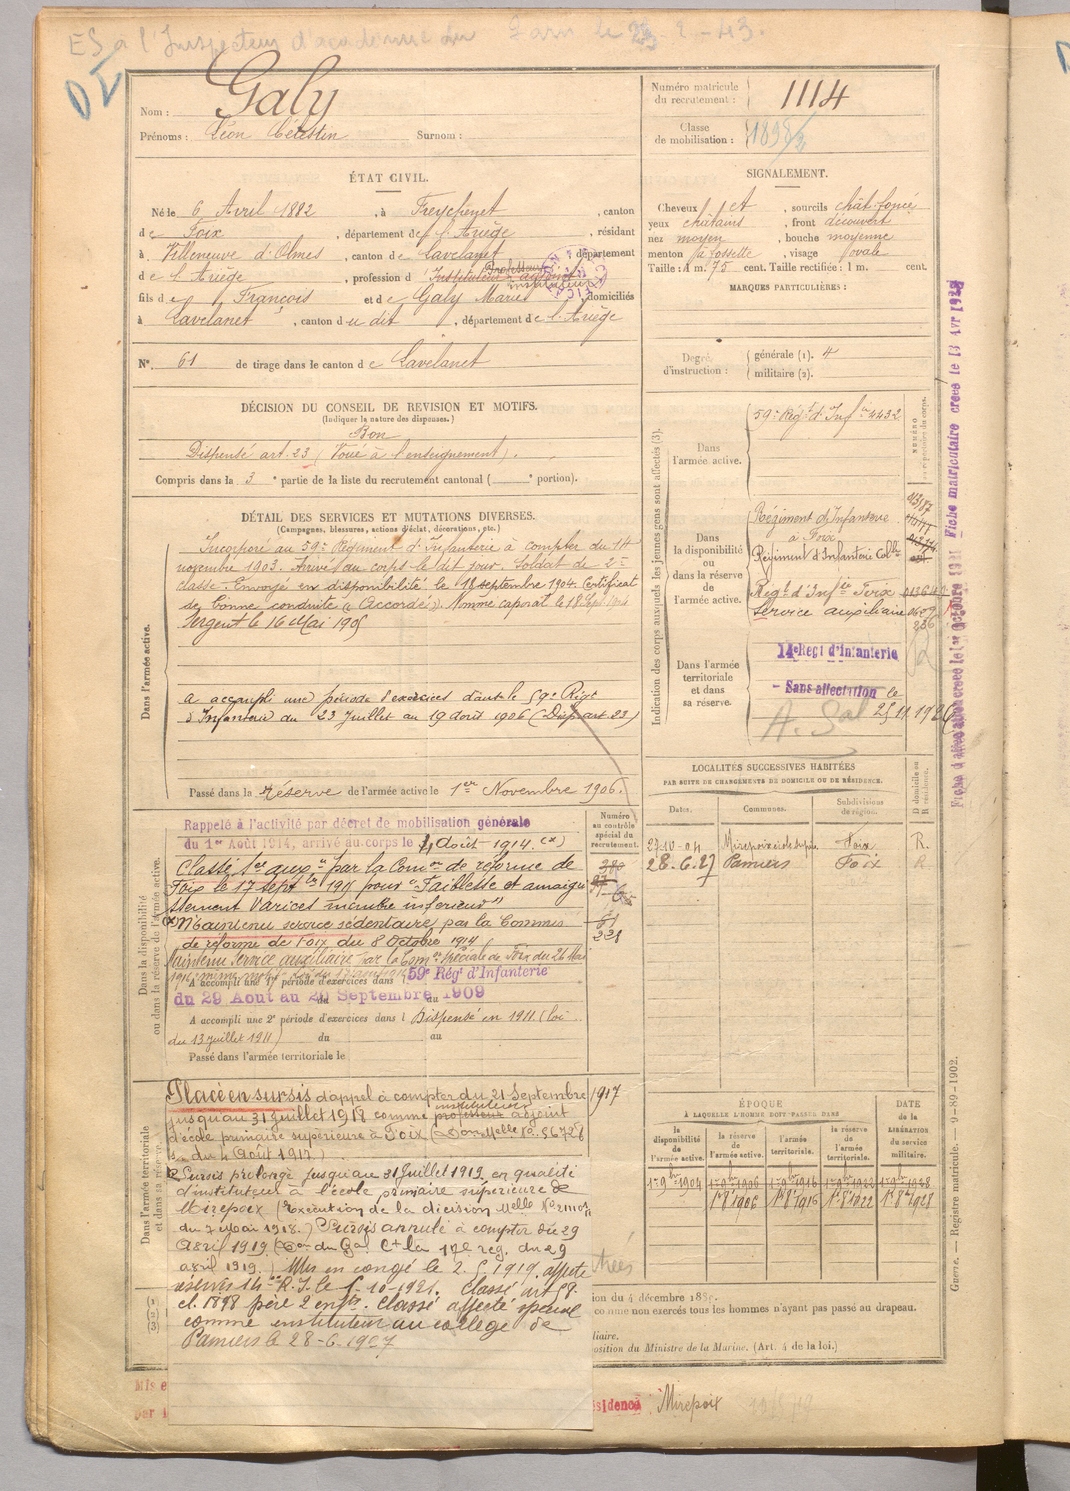 ES à l'Inspecteur d'académie
Nom : Galy
Prénoms : Léon Célestin Surnom :
Numéro matricule du recrutement : 1114
Classe de mobilisation : 1898/2
ÉTAT CIVIL.
Né le 6 Avril 1882, à Freychenet, canton
de Foix, département de l'Ariège, résidant
à Villeneuve d'Olmes, canton de Lavelanet, département
de l'Ariège, profession d' Instituteur adjoint
Professeur
instituteur
fils de François et de Galy Marie domiciliés
à Lavelanet, canton du dit, département de l'Ariège
SIGNALEMENT.
Cheveux et, sourcils chât. foncé
yeux châtains, front découvert
nez moyen, bouche moyenne
menton à fossette, visage ovale
Taille : 1 m. 75 cent. Taille rectifiée : 1 m. cent.
MARQUES PARTICULIÈRES :
N° 61 de tirage dans le canton de Lavelanet
Degré d'instruction : générale (1). 4
militaire (2).
DÉCISION DU CONSEIL DE REVISION ET MOTIFS.
(Indiquer la nature des dispenses.)
Bon
Dispensé art. 23 (Voué à l'enseignement).
Compris dans la 3e partie de la liste du recrutement cantonal ( e portion).
DÉTAIL DES SERVICES ET MUTATIONS DIVERSES.
(Campagnes, blessures, actions d'éclat, décorations, etc.)
Dans l'armée active.
Incorporé au 59e Régiment d'Infanterie à compter du 14
novembre 1903. Arrivé au corps le dit jour. Soldat de 2e
classe. Envoyé en disponibilité le 18 septembre 1904. Certificat
de bonne conduite "Accordé". Nommé caporal le 18 Sept. 1904
Sergent le 16 Mai 1905
a accompli une période d'exercices dans le 59e Régt
d'Infanterie du 23 Juillet au 19 août 1906 (Disp. art 23)
Passé dans la réserve de l'armée active le 1er Novembre 1906.
Dans la disponibilité ou dans la réserve de l'armée active.
Rappelé à l'activité par décret de mobilisation générale
du 1er Août 1914, arrivé au corps le 4 Août 1914. (x)
Classé Sce aux. par la Comon de réforme de
Foix le 17 sept 191 pour "Faiblesse et amaigris
sement Varices membre inférieur"
(x) Maintenu service sédentaire par la Commis
de réforme de Foix du 8 Octobre 1914
Maintenu Service auxiliaire par la Comon spéciale de Foix du 26 Mai
A accompli une 1re période d'exercices dans l 59e Régt d'Infanterie
du 29 Aout au 20 Septembre 1909
A accompli une 2e période d'exercices dans l Dispensé en 1911 (loi
du 13 juillet 1911) du au
Passé dans l'armée territoriale le
Numéro au contrôle spécial du recrutement.
61
228
Dans l'armée territoriale et dans sa réserve.
Placé en sursis d'appel à compter du 21 Septembre 1917
jusqu'au 31 juillet 1918 comme professeur adjoint
instituteur
d'école primaire supérieure à Foix (Don Melle No 56728
du 4 Août 1917)
Sursis prolongé jusqu'au 31 Juillet 1919, en qualité
d'instituteur à l'école primaire supérieure de
Mirepoix (exécution de la décision Melle No
du 7 Mai 1918.) Sursis annulé à compter du 29
Avril 1919. (Don du Gal Ct la 17e reg. du 29
avril 1919.) Mis en congé le 2. 5. 1919. affecté
réserves 14e R.I. le 1-10-1921. Classé
cl. 1898 père 2 enfts. Classé affecté spécial
comme instituteur au collège de
Pamiers le 28-6-1927
Indication des corps auxquels les jeunes gens sont affectés (3).
Dans l'armée active.
59e Régt d'Infie 4432
NUMÉRO au répertoire du corps.
Dans la disponibilité ou dans la réserve de l'armée active.
Régiment d'Infanterie
à Foix
Régiment d'Infanterie Colle
Régt d'Infie Foix
Service auxiliaire
Dans l'armée territoriale et dans sa réserve.
14e Régt d'Infanterie
Sans affectation le
25 11 1926
LOCALITÉS SUCCESSIVES HABITÉES
PAR SUITE DE CHANGEMENTS DE DOMICILE OU DE RÉSIDENCE.
Dates. Communes. Subdivisions de région. D domicile ou R résidence.
27-10-04 Mirepoix Foix R.
28-6-27 Pamiers Foix R
ÉPOQUE
À LAQUELLE L'HOMME DOIT PASSER DANS
la disponibilité de l'armée active. la réserve de l'armée active. l'armée territoriale. la réserve de l'armée territoriale. DATE de la LIBÉRATION du service militaire.
1er 9bre 1904 1er 9bre 1906 1er 9bre 1916 1er 9bre 1922 1er 9bre 1928
1er 8bre 1906 1er 8bre 1916 1er 8bre 1922 1er 8bre 1928
ion du 4 décembre 188
comme non exercés tous les hommes n'ayant pas passé au drapeau.
liaire.
position du Ministre de la Marine. (Art. 4 de la loi.)
Mis e
par l
ésidence Mirepoix
Fiche matriculaire créée le 13 Avr 1928
Fiche d'affectation créée le 1er Octobre 1921
Guerre. — Registre matricule. — 9-89-1902.